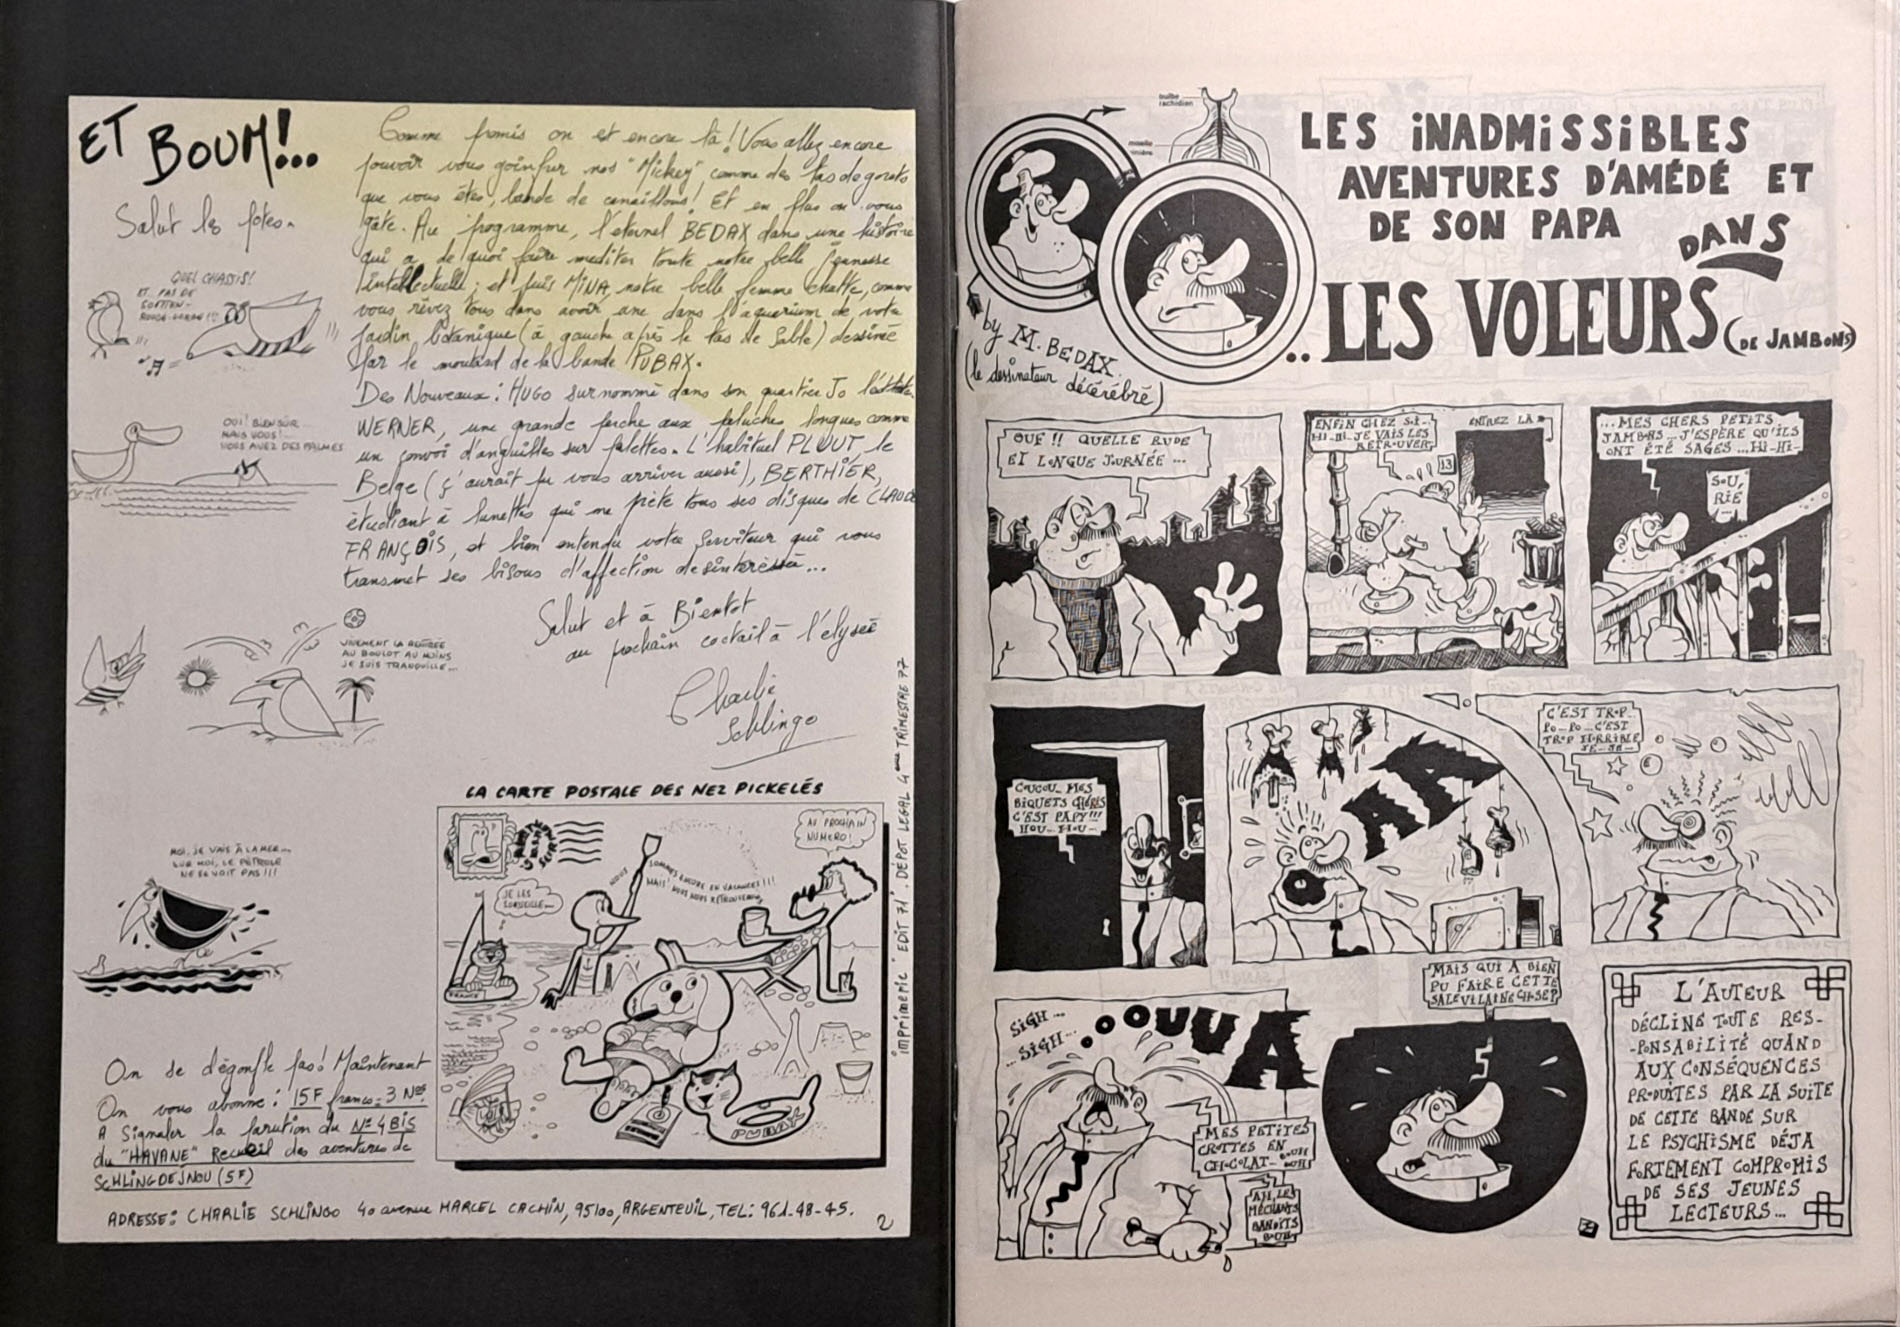 ET BOUM!...
Salut les potes.
Comme promis on est encore là! Vous allez encore
pouvoir vous goinfrer nos "Mickey" comme des tas de gorets
que vous êtes, bande de canaillous! Et en plus on vous
gâte. Au programme, l'éternel BEDAX dans une histoire
qui a de quoi faire mediter toute notre belle jeunesse
intellectuelle; et puis MINA, notre belle femme chatte, comme
vous rêvez tous dans avoir une dans l'aquarium de votre
jardin botanique (à gauche après le tas de Sable) dessinée
par le moutard de la bande PUBAX.
Des Nouveaux: HUGO surnommé dans son quartier Jo
WERNER, une grande perche aux paluches longues comme
un convoi d'anguilles sur palettes. L'habituel PLOUT, le
Belge (ç'aurait pu vous arriver aussi), BERTHIER,
étudiant à lunettes qui me prète tous ses disques de CLAUDE
FRANÇOIS, et bien entendu votre Serviteur qui vous
transmet ses bisous d'affection desintéressée...
Salut et à Bientot
au prochain coctail à l'élysée
Charlie
Schlingo
QUEL CHASSIS!
ET PAS DE
SOUTIEN-
ROUGE-GORGE!!!
OUI! BIEN SÛR...
MAIS VOUS!...
VOUS AVEZ DES PALMES
VIVEMENT LA RENTRÉE
AU BOULOT AU MOINS
JE SUIS TRANQUILLE...
MOI, JE VAIS À LA MER...
SUR MOI, LE PÉTROLE
NE SE VOIT PAS!!!
LA CARTE POSTALE DES NEZ PICKELÉS
JE LES
SURVEILLE...
NOUS SOMMES ENCORE EN VACANCES!!!
MAIS! NOUS NOUS RETROUVERONS
AU PROCHAIN
NUMERO!
FRANCE
PUBAX
imprimerie "EDIT 71". DÉPOT LEGAL 4ème TRIMESTRE 77
On se dégonfle pas! Maintenant
On vous abonne: 15F francs = 3 Nos.
A Signaler la parution du No 4 BIS
du "HAVANE" Recueil des aventures de
SCHLINGDEJNOU (5F)
ADRESSE: CHARLIE SCHLINGO 40 avenue MARCEL CACHIN, 95100, ARGENTEUIL, TEL: 961-48-45.
2
bulbe
rachidien
moelle
LES INADMISSIBLES
AVENTURES D'AMÉDÉ ET
DE SON PAPA DANS
..LES VOLEURS (DE JAMBONS)
by M. BEDAX.
(le dessinateur décérébré)
OUF!! QUELLE RUDE
ET LONGUE JOURNÉE...
ENFIN CHEZ SI-
HI-HI. JE VAIS LES
RETROUVER
13
ENTREZ LÀ
...MES CHERS PETITS
JAMBONS... J'ESPÈRE QU'ILS
ONT ÉTÉ SAGES...HI-HI-
SOU,
RIE
COUCOU_ MES
BIQUETS CHÉRIS
C'EST PAPY!!!
HOU-HOU-
AIA
C'EST TROP_
PO_PO_ C'EST
TROP HORRIBLE
JE_JE_
SIGH...
...SIGH...
OOUUUA
MES PETITES
CROTTES EN
CHOCOLAT_BOUH
BOUH
AH, LES
MÉCHANTS
BANDITS
BOUH
MAIS QUI A BIEN
PU FAIRE CETTE
SALE VILAINE CHOSE?
L'AUTEUR
DÉCLINE TOUTE RES-
-PONSABILITÉ QUAND
AUX CONSÉQUENCES
PRODUITES PAR LA SUITE
DE CETTE BANDE SUR
LE PSYCHISME DÉJA
FORTEMENT COMPROMIS
DE SES JEUNES
LECTEURS...